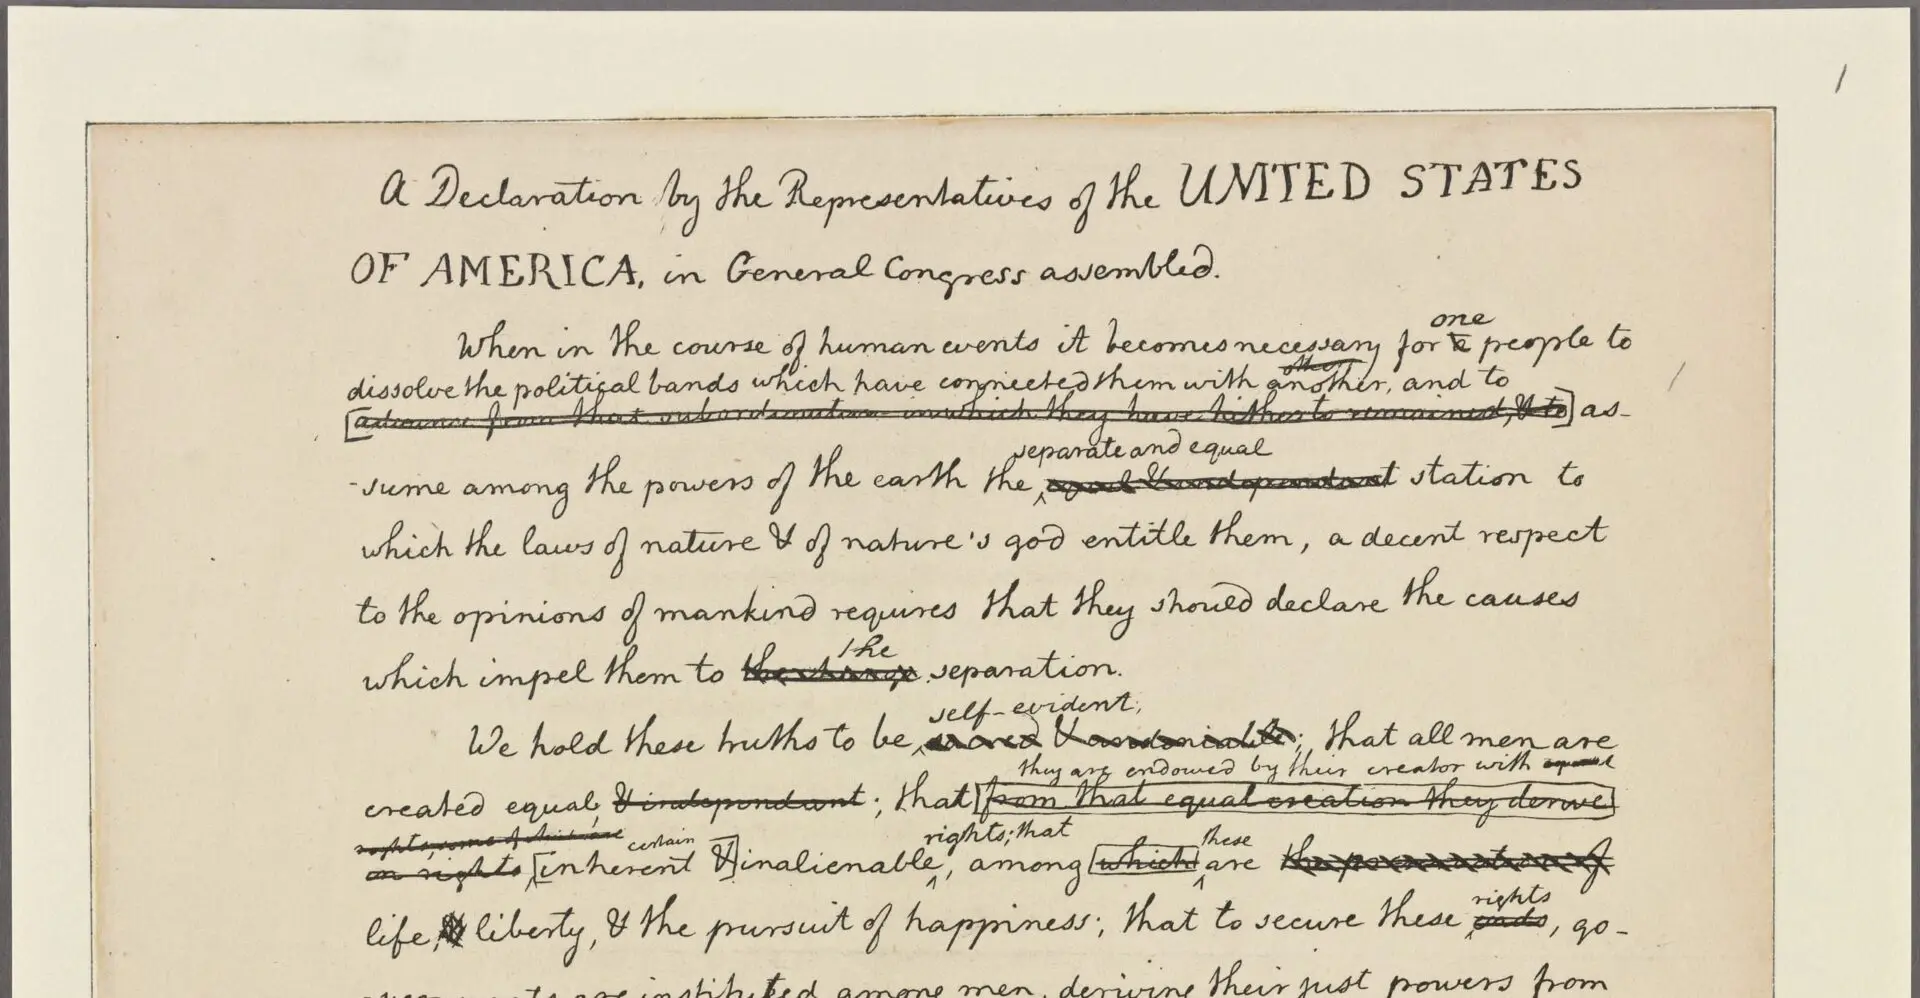 /
A Declaration by the Representatives of the UNITED STATES
OF AMERICA, in General Congress assembled.
one
When in the course of human events it becomes necessary for a people to
dissolve the political bands which have connected them with another, and to
[advance from that subordination in which they have hitherto remained, & to] as-
separate and equal
-sume among the powers of the earth the equal & independant station to
which the laws of nature & of nature's god entitle them, a decent respect
to the opinions of mankind requires that they should declare the causes
the
which impel them to the change separation.
self-evident;
We hold these truths to be sacred & undeniable; that all men are
they are endowed by their creator with equal
created equal, & independant; that [from that equal creation they derive]
rights, some of
certain
rights; that
these
in rights [inherent &] inalienable, among [which] are the preservation of
rights
life, & liberty, & the pursuit of happiness; that to secure these ends, go-
are instituted among men, deriving their just powers from